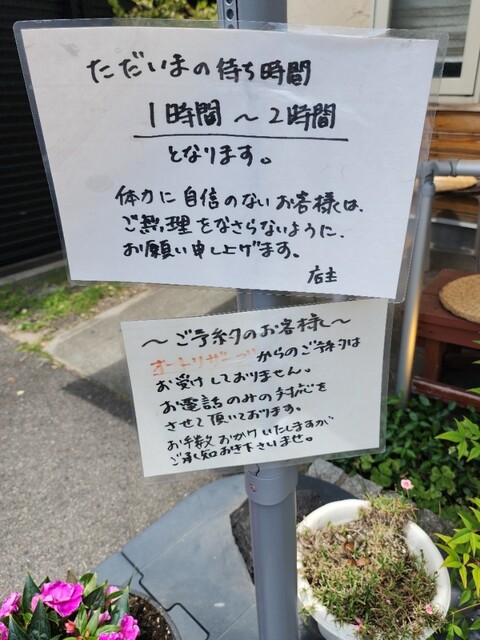 ただいまの待ち時間
1時間～2時間
となります。
体力に自信のないお客様は、
ご無理をなさらないように、
お願い申し上げます。
店主
～ご予約のお客様へ～
オートリザーブからのご予約は
お受けしておりません。
お電話のみの対応を
させて頂いております。
お手数おかけいたしますが
ご承知おき下さいませ。